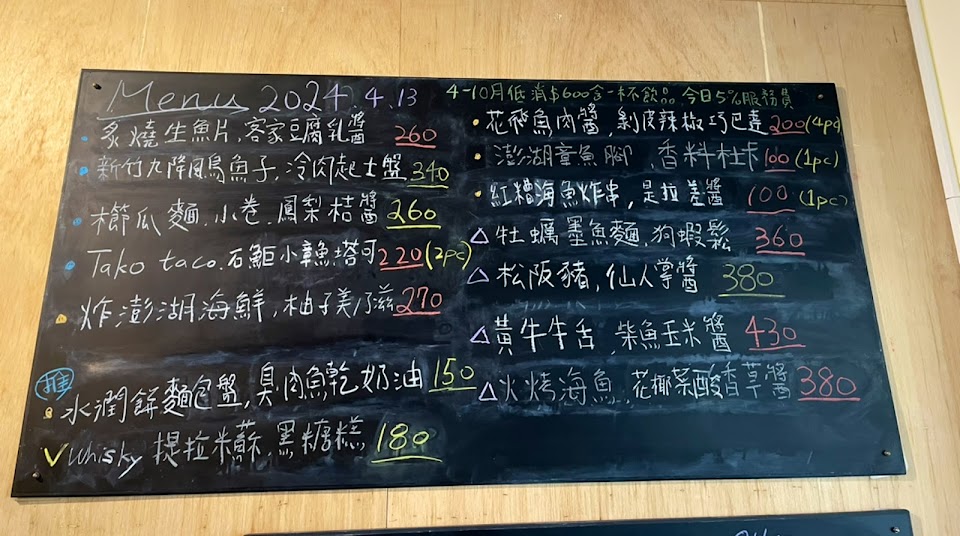 Menu 2024.4.13
炙燒生魚片,客家豆腐乳醬 260
新竹九降風烏魚子,冷肉起士盤 340
櫛瓜麵.小卷.鳳梨桔醬 260
Tako taco.石鮔小章魚塔可 220(2pc)
炸澎湖海鮮,柚子美乃滋 270
推
水潤餅麵包盤,臭肉魚乾奶油 150
V Whisky 提拉米蘇.黑糖糕 180
4-10月低消$600含一杯飲品 今日5%服務費
花飛魚肉醬,剝皮辣椒巧巴達 200(4pc)
澎湖章魚腳,香料杜卡 100(1pc)
紅糟海魚炸串,是拉差醬 100(1pc)
△牡蠣墨魚麵.狗蝦鬆 360
△松阪豬,仙人掌醬 380
△黃牛牛舌,柴魚玉米醬 430
△火烤海魚,花椰菜酸香草醬 380